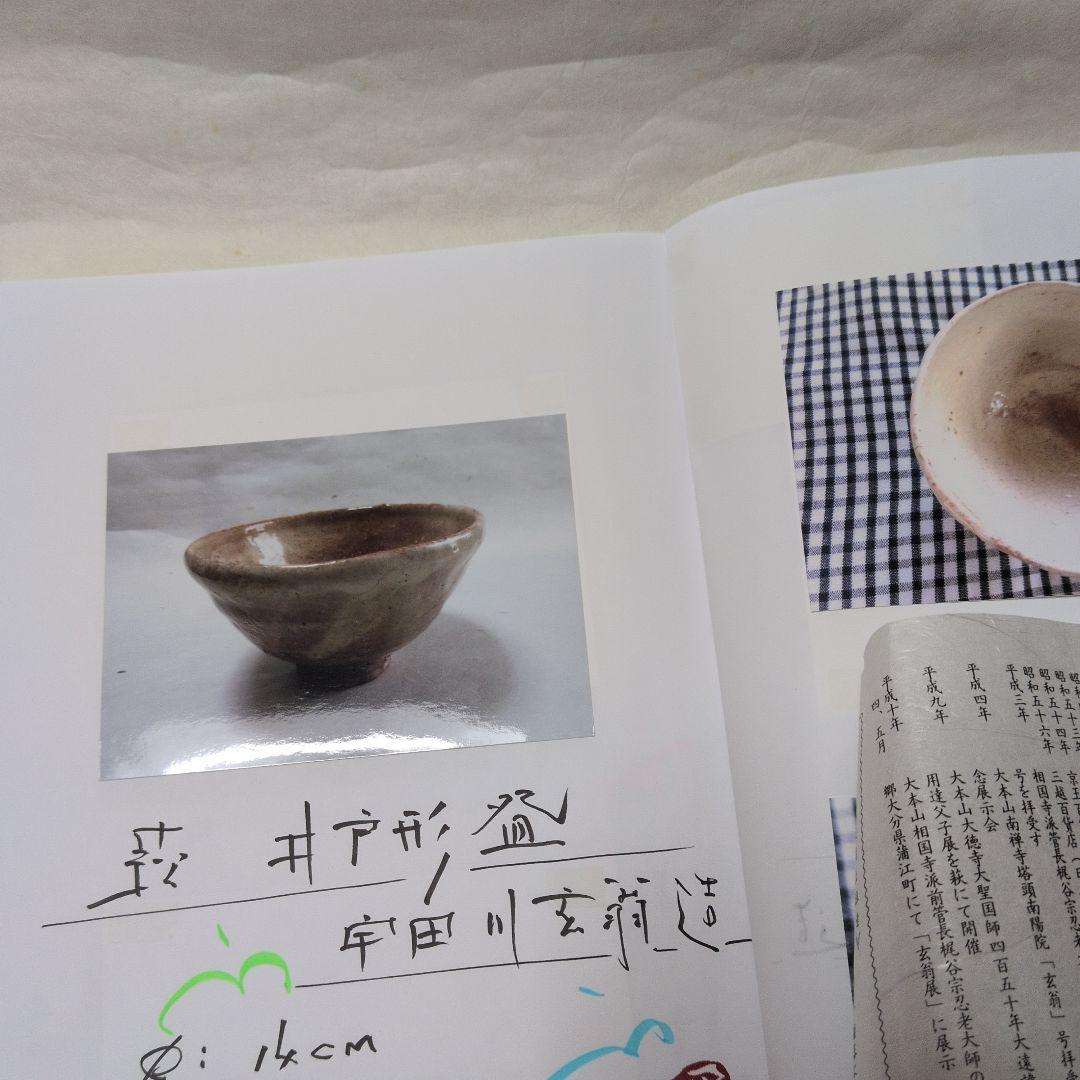 萩 井戸形 盌
宇田川玄翁造
φ: 14cm
昭和五十四年
三越百貨店
昭和五十六年
相国寺派管長梶谷宗忍老
号を拝受す
平成三年
大本山南禅寺塔頭南陽院「玄翁」号拝
平成四年
大本山大徳寺大聖国師四百五十年大遠
念展示会
平成九年
大本山相国寺派前管長梶谷宗忍老大師の
用達父子展を萩にて開催
平成十年
四、五月
郷大分県蒲江町にて「玄翁展」に展示